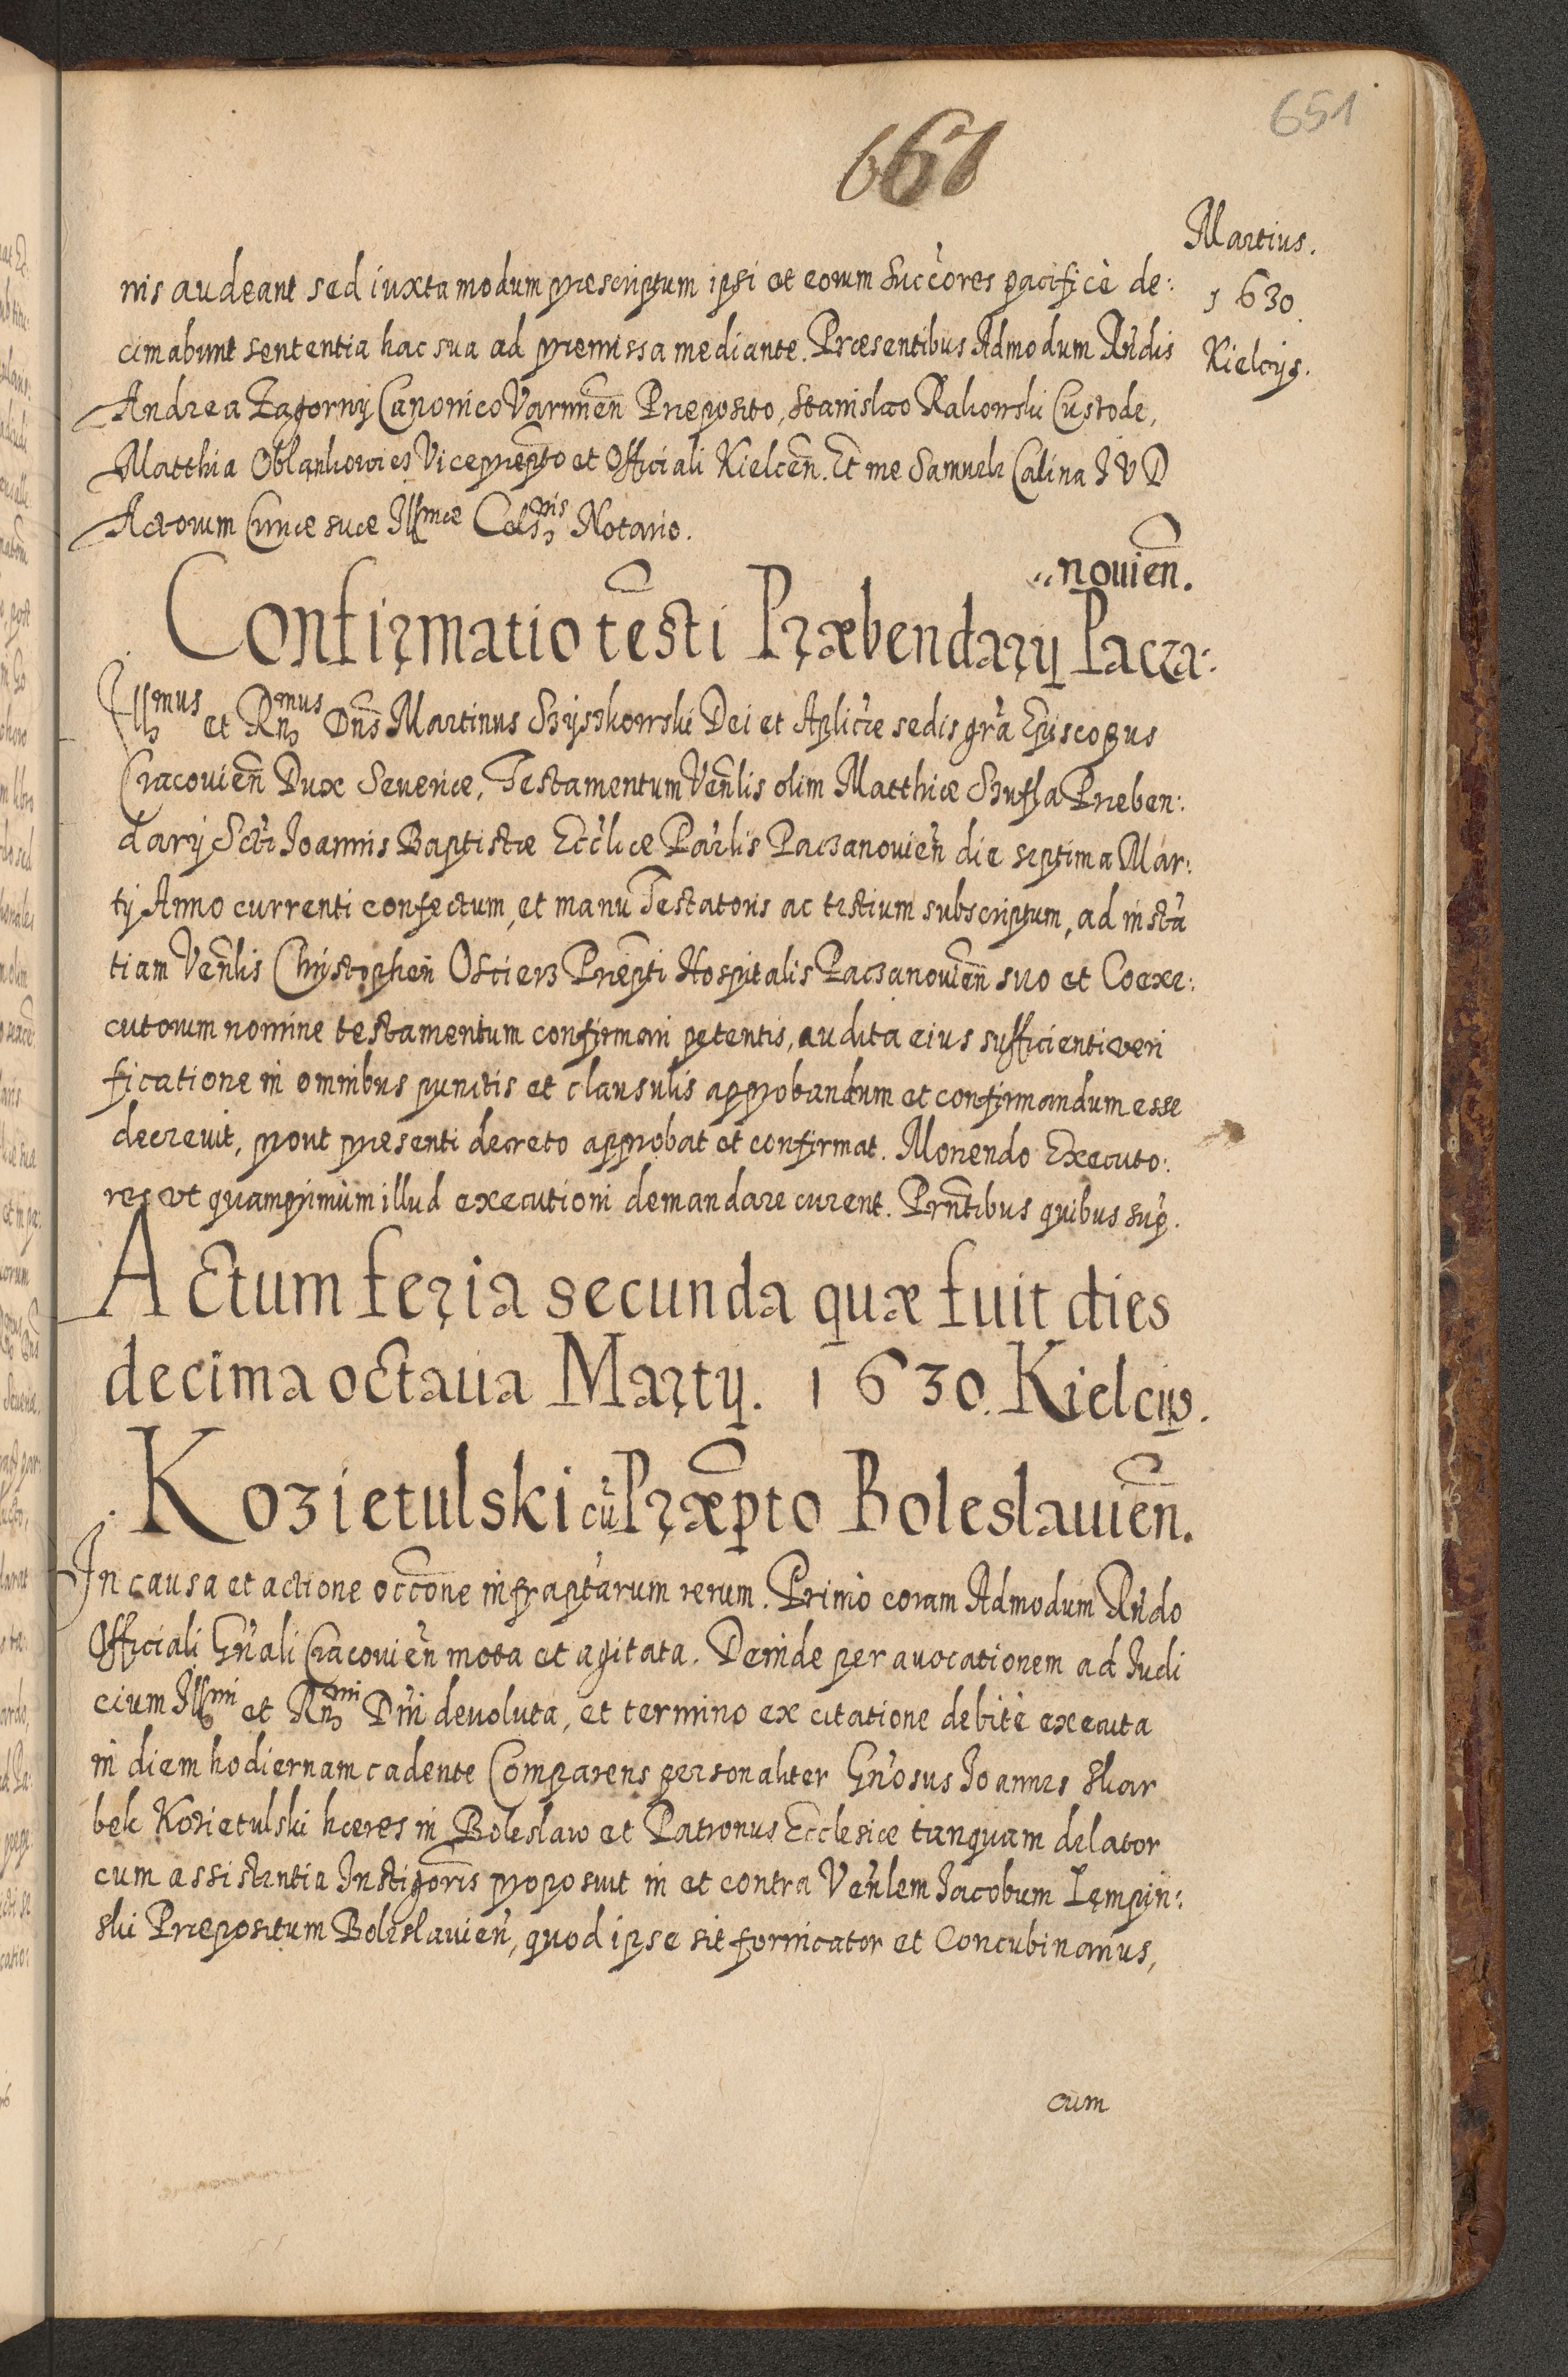 651
661
Martius.
1630.
Kielcijs.
nis audeant sed iuxta modum præscriptum ipsi et eorum Succ̃ores pacificè de:
cimabunt sententia hac sua ad præmissa mediante. Præsentibus Admodum Rñdis
Andrea Zagorny Canonico Varmieñ Præposito, Stanislao Rakowski Custode,
Matthia Oblapkowics Vicepræp̃to et Officiali Kielceñ. Et me Samuele Calina I V D
Actorum Curiæ suæ Ill̃mæ Cels̃nis Notario.
Confirmatio tẽsti Præbendarij Pacza:
,,novieñ.
Ill̃mus et Rñmus Dñs Martinus Szyszkowski Dei et Aplicæ sedis gr̃a Episcopus
Cracovieñ Dux Severiæ, Testamentum Veñlis olim Matthiæ Szufla Præben:
darij Scti Joannis Baptistæ Eccl̃iæ Par̃lis Paczanovieñ die septima Mar:
tij Anno currenti confectum, et manu Testatoris ac testium subscriptum, ad instã
tiam Veñlis Christopheri Ościerz Præp̃ti Hospitalis Paczanovieñ suo et Coexe:
cutorum nomine testamentum confirmari petentis, audita eius sufficienti veri
ficatione in omnibus punctis et clausulis approbandum et confirmandum esse
decrevit, prout præsenti decreto approbat et confirmat. Monendo Executo:
res ut quamprimùm illud executioni demandare curent. Prñtibus quibus sup̃.
Actum feria secunda quæ fuit dies
decima octava Martij. 1630. Kielcijs.
Kozietulski cũ Præp̃to Boleslavieñ.
In causa et actione occ̃one infrapt̃arum rerum. Primò coram Admodum Rñdo
Officiali Gñali Cracovieñ mota et agitata. Deinde per avocationem ad Iudi
cium Ill̃mi et Rñmi Dñi devoluta, et termino ex citatione debitè executa
in diem hodiernam cadente Comparens personaliter Gñosus Joannes Skar
bek Kozietulski hæres in Boleslaw et Patronus Ecclesiæ tanquam delator
cum assistentia Instigoris proposuit in et contra Veñlem Jacobum Lempin:
ski Præpositum Boleslavieñ, quod ipse sit fornicator et Concubinarius,
cum